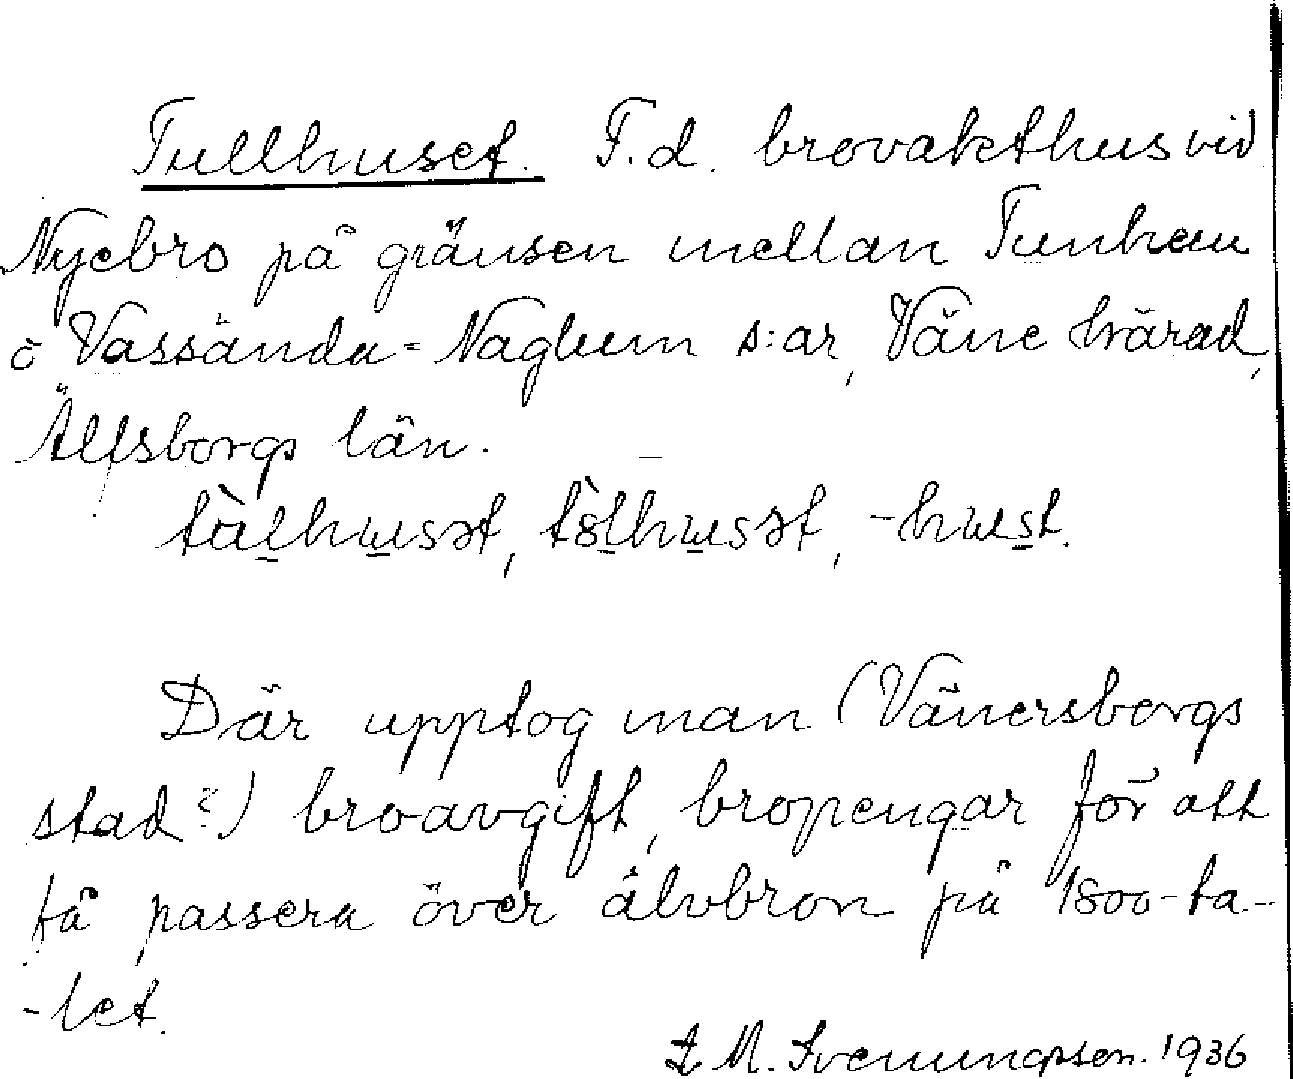 Tullhuset. F.d. brovakthus vid
Nyebro på gränsen mellan Tunhem
o Vassända-Naglum s:ar, Väne härad,
Älfsborgs län.
Där upptog man (Vänersborgs
stad?) broavgift, bropengar för att
få passera över älvbron på 1800-ta-
-let.
M. Svenungsson. 1936